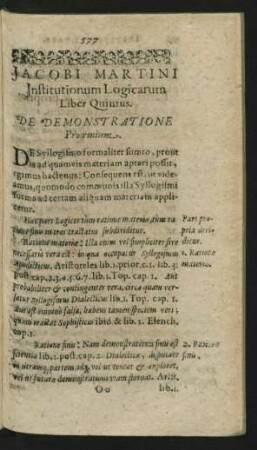 577
JACOBI MARTINI
Institutionum Logicarum
Liber Quintus.
DE DEMONSTRATIONE
Proœmium.
DE Syllogismo formaliter sumto, prout
ad quamvis materiam aptari possit,
egimus hactenus: Consequens est, ut vide-
amus, quomodo communis illa Syllogismi
forma ad certam aliquam materiam applic-
etur.
Hæc pars Logicæ tum ratione materiæ, tum ra-
tione finis in tres tractatus subdividitur.
Pars pro-
pria
Ratione materiæ: Illa enim vel simpliciter sive
necessario vera est: in qua occupatur Syllogismus
Apodicticus. Aristoteles lib. 1. prior. c. 1. lib. 1.
post. cap. 2. 3. 4. 5. 6. 7. lib. 1. Top. cap. 1. Aut
probabiliter & contingenter vera, circa quam ver-
satur Syllogismus Dialecticus lib. 1. Top. cap. 1.
Aut est omnino falsa, habens tamen speciem veri;
quam tractat Sophisticus ibid. & lib. 1. Elench.
cap. 1.
1. Ratione
materiæ.
Ratione finis: Nam demonstrationis finis est
scientia lib. 1. post. cap. 2. Dialecticæ, disputare
in utramque partem, adeoque vel ut tentet & exploret,
vel ut futuræ demonstrationi viam sternat. Arist.
2. Ratione
finis.
Oo
lib. 1.